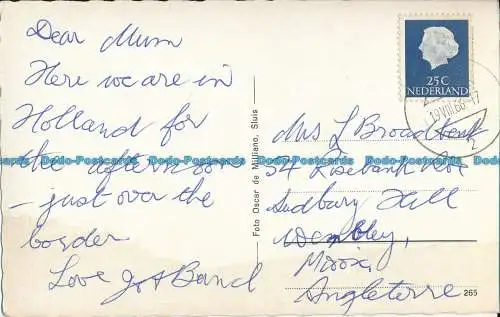 Dear Mum
Here we are in
Holland for
the afternoon
- just over the
border
Love
Foto Oscar de Milliano, Sluis
25 C
NEDERLAND
19 VIII 66-17
Mrs L Broadbent
54 Rosebank Ave
Sudbury Hill
Wembley,
Middx,
Angleterre
265
Dodo-Postcards Dodo-Postcards Dodo-Postcards Dodo-Postcards Dodo-Postcards